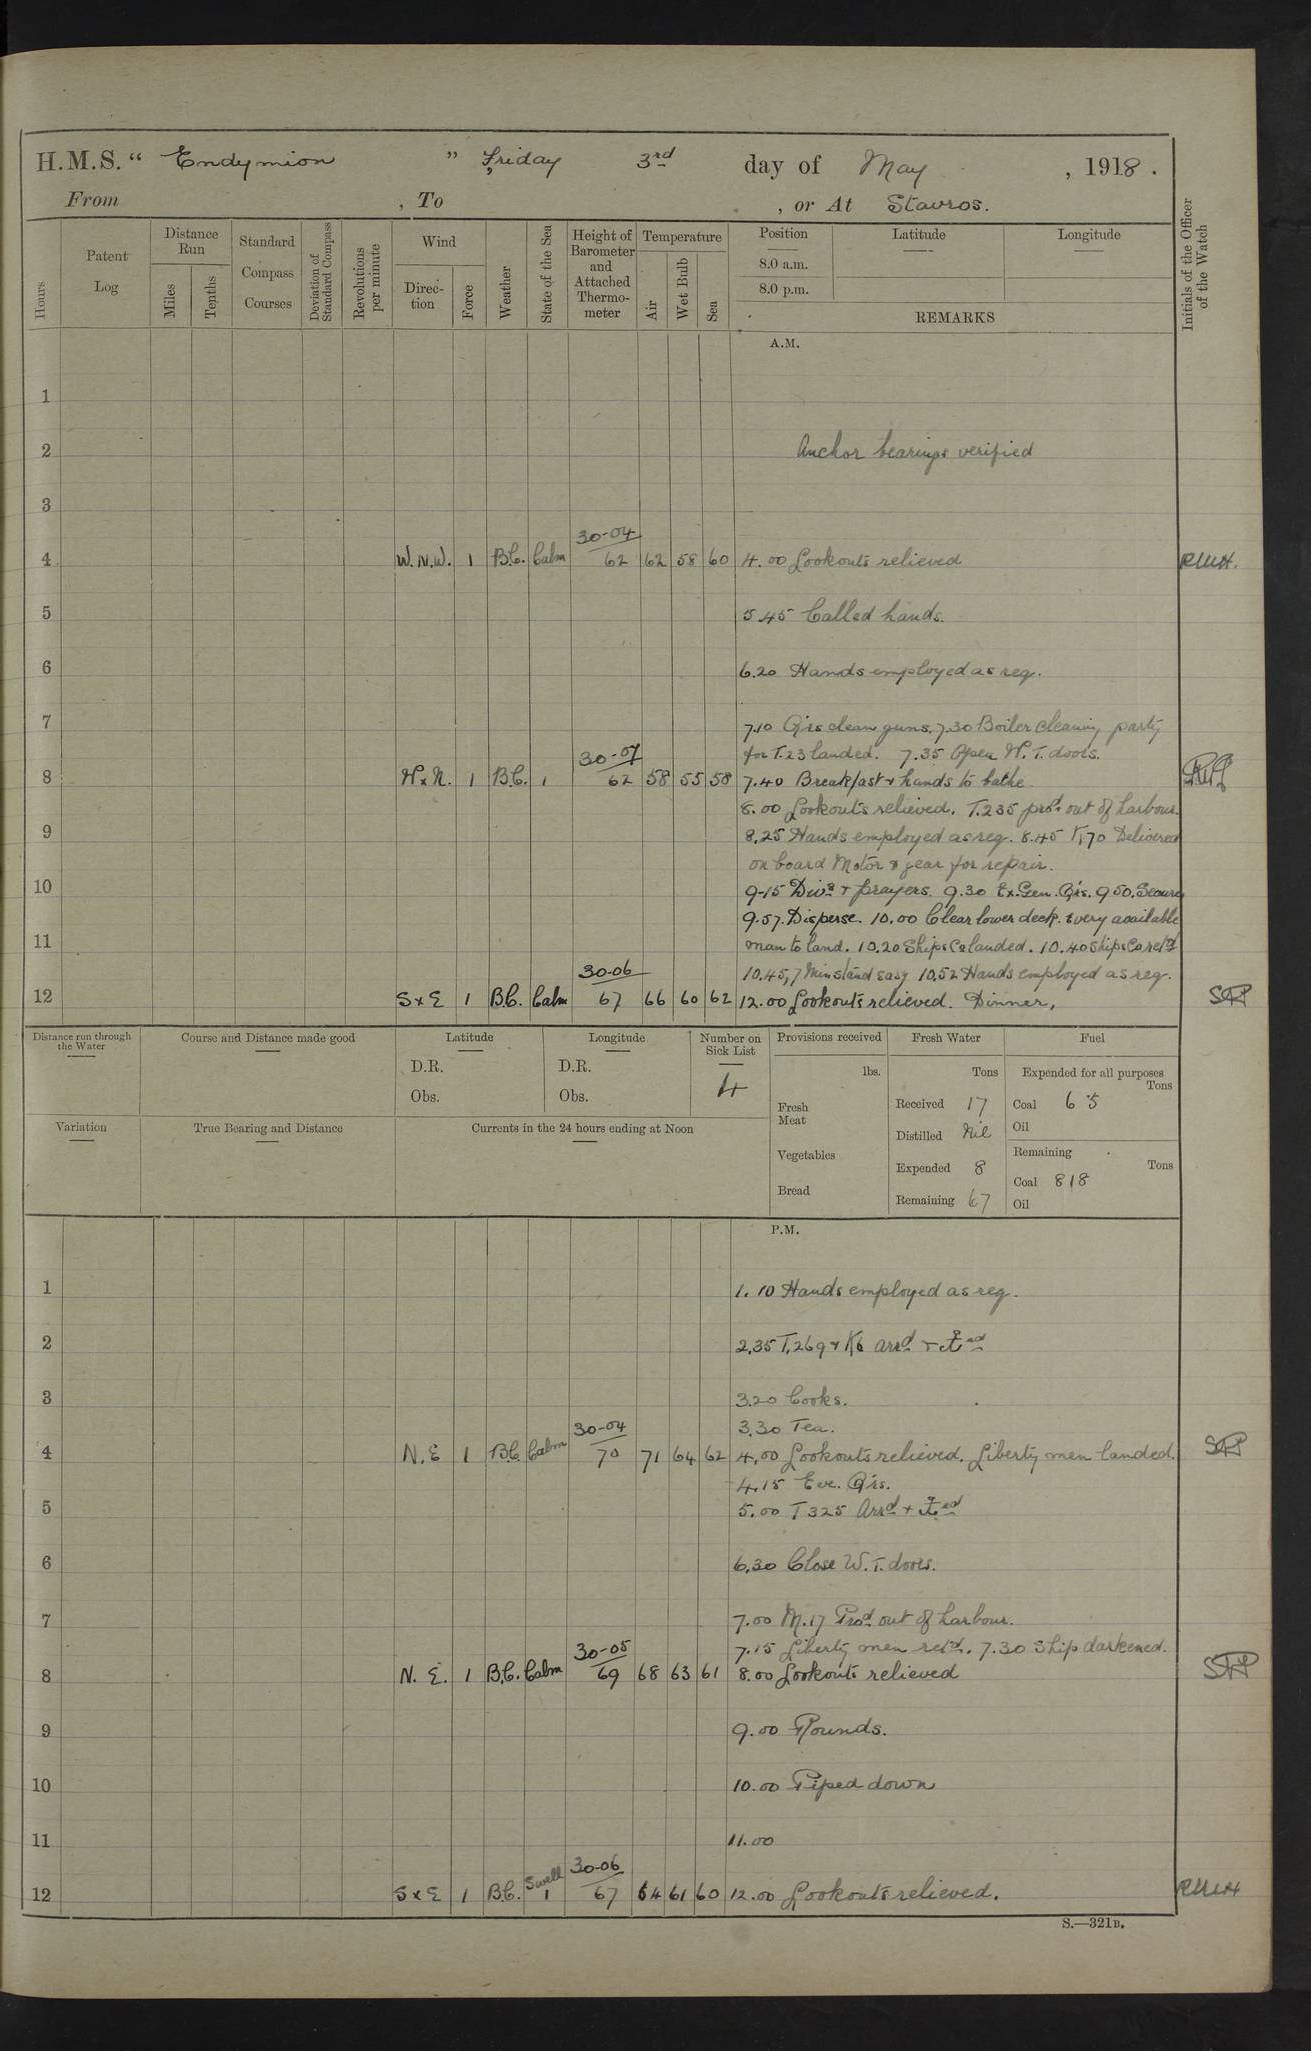 H.M.S. “ Endymion ” Friday 3rd day of May , 1918 .
From , To , or At Stavros.
Hours
Patent Log
Distance Run
Miles
Tenths
Standard Compass Courses
Deviation of Standard Compass
Revolutions per minute
Wind
Direction
Force
Weather
State of the Sea
Height of Barometer and Attached Thermometer
Temperature
Air
Wet Bulb
Sea
Position
8.0 a.m.
8.0 p.m.
Latitude
Longitude
REMARKS
Initials of the Officer of the Watch
A.M.
1
2 Anchor bearings verified
3
30-04
4 W.N.W. 1 B.C. Calm 62 62 58 60 4.00 Lookouts relieved R.W.H.
5 5.45 Called hands.
6 6.20 Hands employed as reg.
7 7.10 Qrs clean guns. 7.30 Boiler cleaning party
30-07 for T.23 landed. 7.35 Open W.T. doors.
8 1 B.C. 1 62 58 55 58 7.40 Breakfast & hands to bathe
8.00 Lookouts relieved. T.235 procd. out of harbour.
9 8.25 Hands employed as reg. 8.45 Delivered
on board Motor & gear for repair.
10 9-15 Divs + prayers. 9.30 Ex. Gen. Qrs. 9 50. Secure
9.57. Disperse. 10.00 Clear lower deck. every available
11 man to land. 10.20 Ships Co landed. 10.40 Ships Co retd
30-06 10.45, 7 Min stand easy 10.52 Hands employed as reg.
12 S x E 1 B.C. Calm 67 66 60 62 12.00 Lookouts relieved. Dinner.
Distance run through the Water
Course and Distance made good
Latitude
D.R.
Obs.
Longitude
D.R.
Obs.
Number on Sick List
4
Provisions received
lbs.
Fresh Meat
Vegetables
Bread
Fresh Water
Tons
Received 17
Distilled Nil
Expended 8
Remaining 67
Fuel
Expended for all purposes
Tons
Coal 6.5
Oil
Remaining
Tons
Coal 818
Oil
Variation
True Bearing and Distance
Currents in the 24 hours ending at Noon
P.M.
1 1.10 Hands employed as reg.
2 2.35 T.269 + K6 arrd +
3 3.20 Cooks.
30-04 3.30 Tea.
4 N.E 1 B.C. Calm 70 71 64 62 4.00 Lookouts relieved. Liberty men landed.
4.15 Eve. Qrs.
5 5.00 T 325 Arrd +
6 6.30 Close W.T. doors.
7 7.00 M.17 Procd out of harbour.
30-05 7.15 Liberty men retd. 7.30 Ship darkened.
8 N. E. 1 B.C. Calm 69 68 63 61 8.00 Lookouts relieved
9 9.00 Rounds.
10 10.00 Piped down
11 11.00
Swell 30-06
12 S x E 1 B.C. 1 67 64 61 60 12.00 Lookouts relieved. R.W.H
S.—321B.